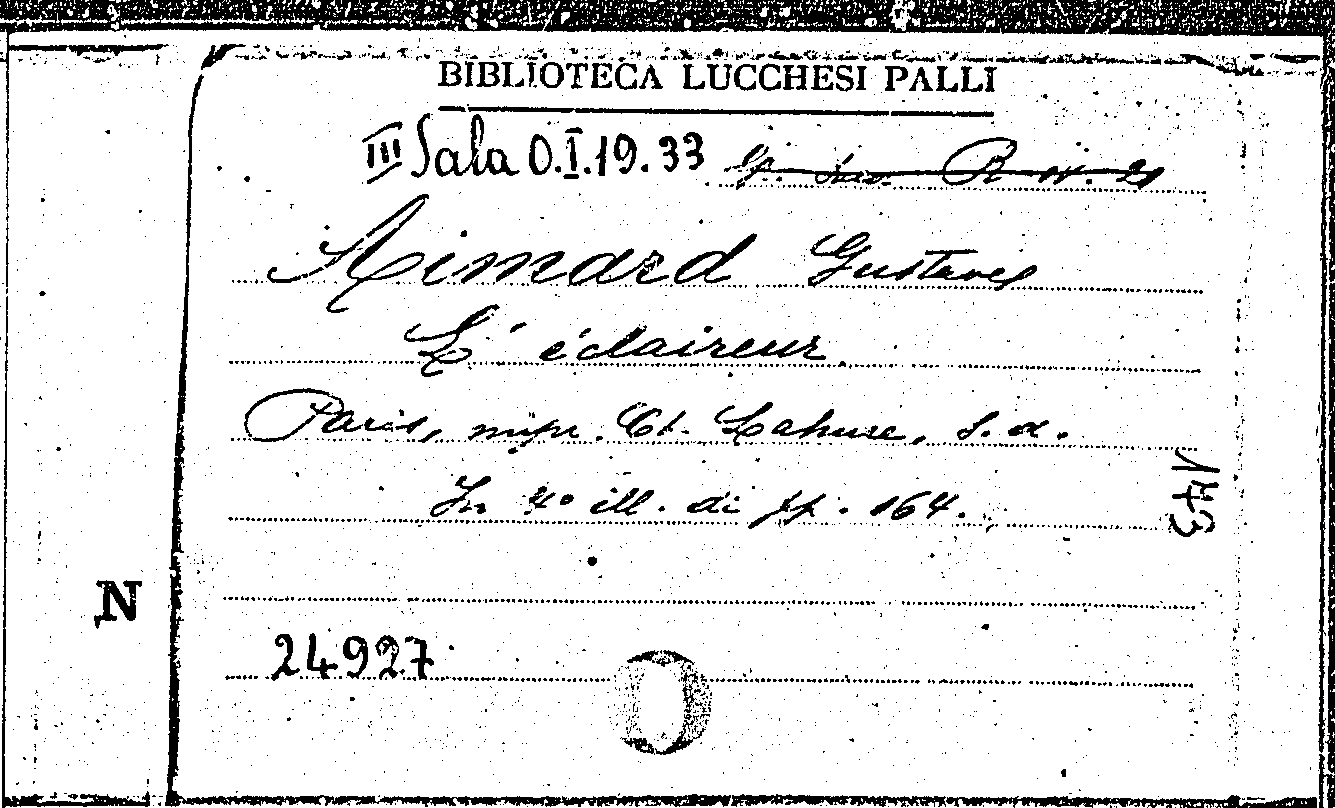 BIBLIOTECA LUCCHESI PALLI
III Sala O.I.19.33
Aimard Gustave
L'éclaireur
Paris, impr. Ch. Lahure, s. d.
In 4° ill. di pp. 164.
N
24927